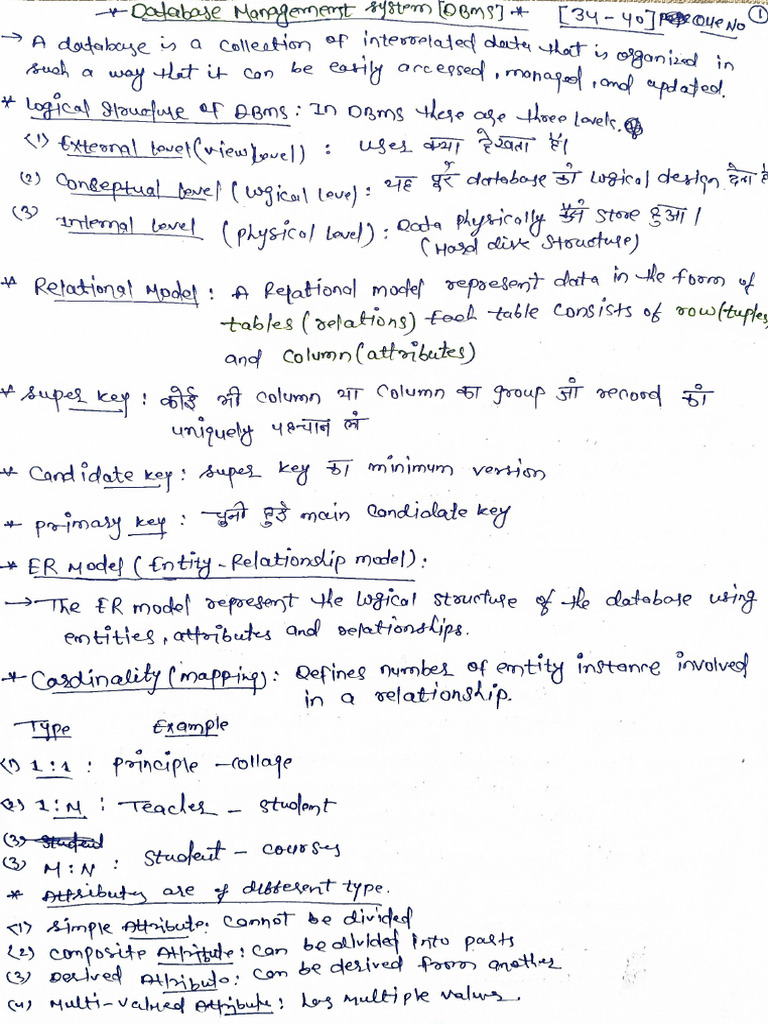 * Database Management System [DBMS] * [34-40] Que No ①
→ A database is a collection of interrelated data that is organized in
such a way that it can be easily accessed, managed, and updated.
* Logical structure of DBMS: In DBMS there are three levels.
(1) External level (view level) : user क्या देखता है।
(2) Conseptual level (Logical level) : यह पूरे database को Logical design देता है
(3) Internal level (physical level) : Data physically कैसे store हुआ।
(Hard disk structure)
* Relational Model : A Relational model represent data in the form of
tables (relations) Each table consists of row (tuples)
and column (attributes)
* Super key : कोई भी column या column का group जो record को
uniquely पहचान ले
* Candidate key : super key का minimum version
* primary key : चुनी हुई main candidate key
* ER Model (Entity-Relationship model) :
→ The ER model represent the logical structure of the database using
entities, attributes and relationships.
* Cardinality (mapping) : Defines number of entity instance involved
in a relationship.
Type Example
(1) 1:1 : principle - collage
(2) 1:M : Teacher - student
(3) Student
(3) M:N : Student - courses
* Attributes are of different type.
(1) simple Attribute: cannot be divided
(2) conposite Attribute: can be divided into parts
(3) Derived Attribute: can be derived from another
(4) Multi-valued Attribute: has multiple values.